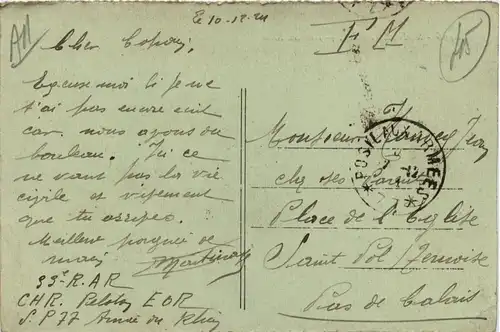 Le 10-12-24
F M
45
Cher Copain,
Excuse moi si je ne
t'ai pas encore écrit
car nous avons du
bouleau. Ici ce
ne vaut pas la vie
civile et vivement
que tu
Meilleur poignée de
main
99e R.AR
CHR. Peloton EOR
S.P 77 Armée du Rhin
Monsieur
chez ses
Place de l'Eglise
Saint Pol Ternoise
Pas de Calais
POSTE AUX ARMEES